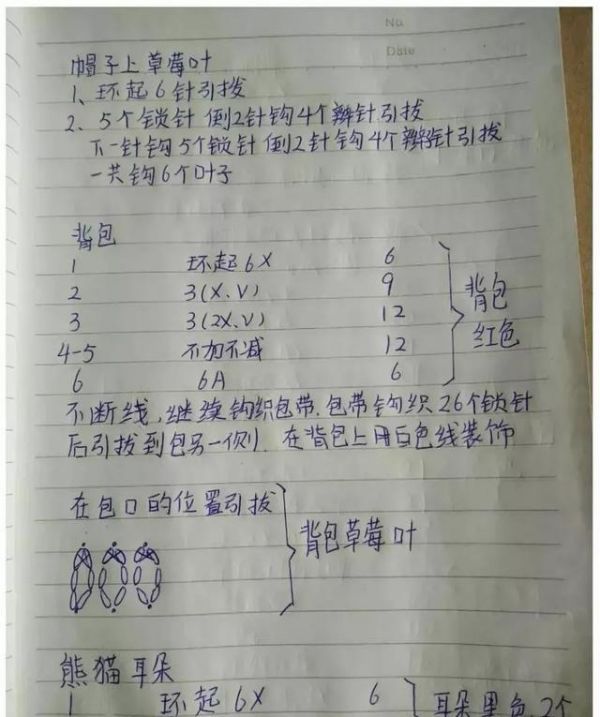 No.
Date
帽子上草莓叶
1、环起6针引拔
2、5个锁针 倒2针钩4个辫针引拔
下一针钩5个锁针 倒2针钩4个辫针引拔
一共钩6个叶子
背包
1 环起6X 6
2 3(X、V) 9
3 3(2X、V) 12
4-5 不加不减 12
6 6A 6
背包
红色
不断线,继续钩织包带.包带钩织26个锁针
后引拔到包另一侧。在背包上用白色线装饰
在包口的位置引拔
背包草莓叶
熊猫耳朵
1 环起6X 6
耳朵黑色2个